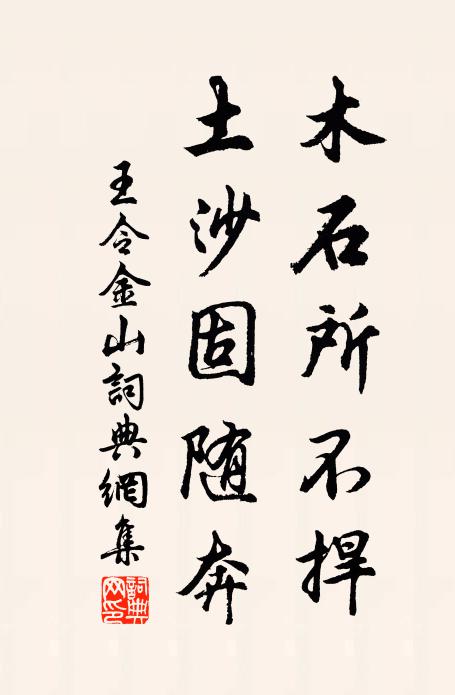 木石所不捍
土沙固随奔
王令金山詞典網集
詞典網印